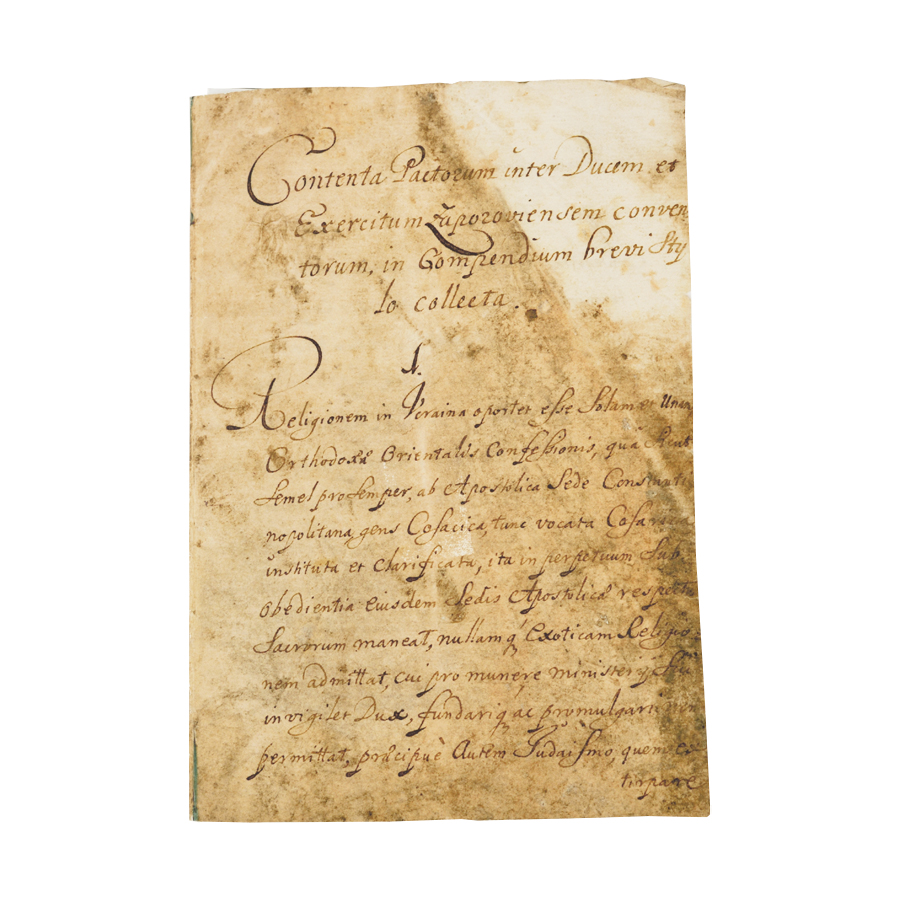 Contenta Pactorum inter Ducem et
Exercitum Zaporoviensem conven
torum, in Compendium brevi Sty
lo collecta.
1.
Religionem in Vcraina oportet esse Solam et Unam
Orthodoxæ Orientalis Confessionis, qua Sicut
Semel pro Semper, ab Apostolica Sede Constanti
nopolitana, gens Cosacica, tunc vocata
instituta et Clarificata, ita in perpetuum Sub
obedientia eiusdem Sedis Apostolicæ respectu
Sacrorum maneat, nullamq́ Exoticam Religio
nem admittat, cui pro munere ministerij Sui
invigilet Dux, fundariq ac promulgari non
permittat, præcipuè Autem Judaismo, quem ex
tirpare